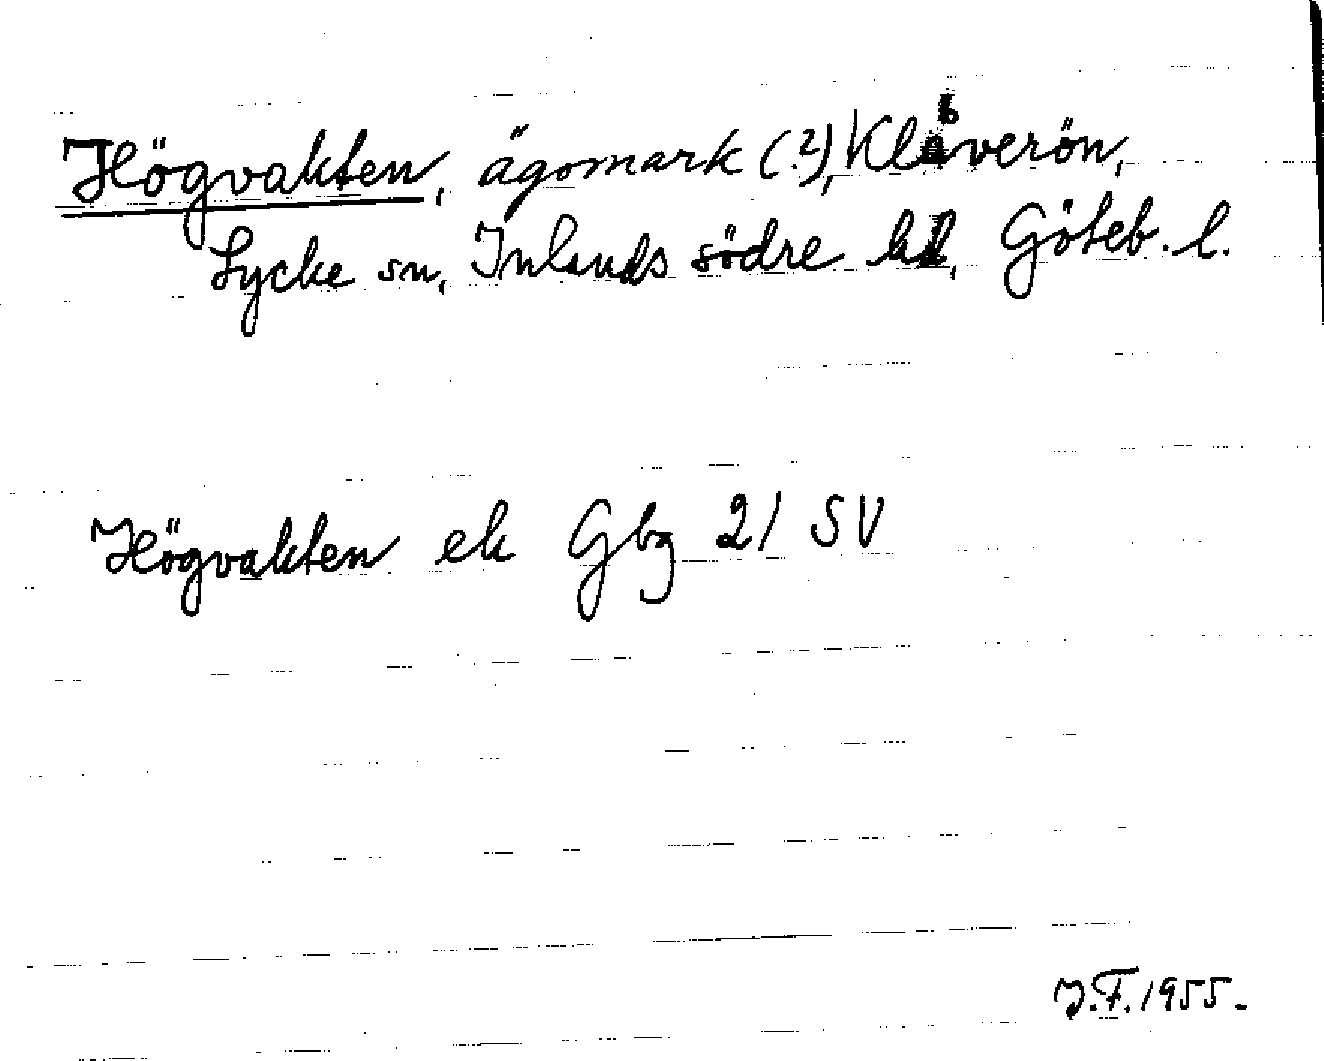 Högvakten, ägomark (?), Klåverön,
Lycke sn, Inlands södre hd, Göteb. l.
Högvakten ek Gbg 21 SV
J.F. 1955.